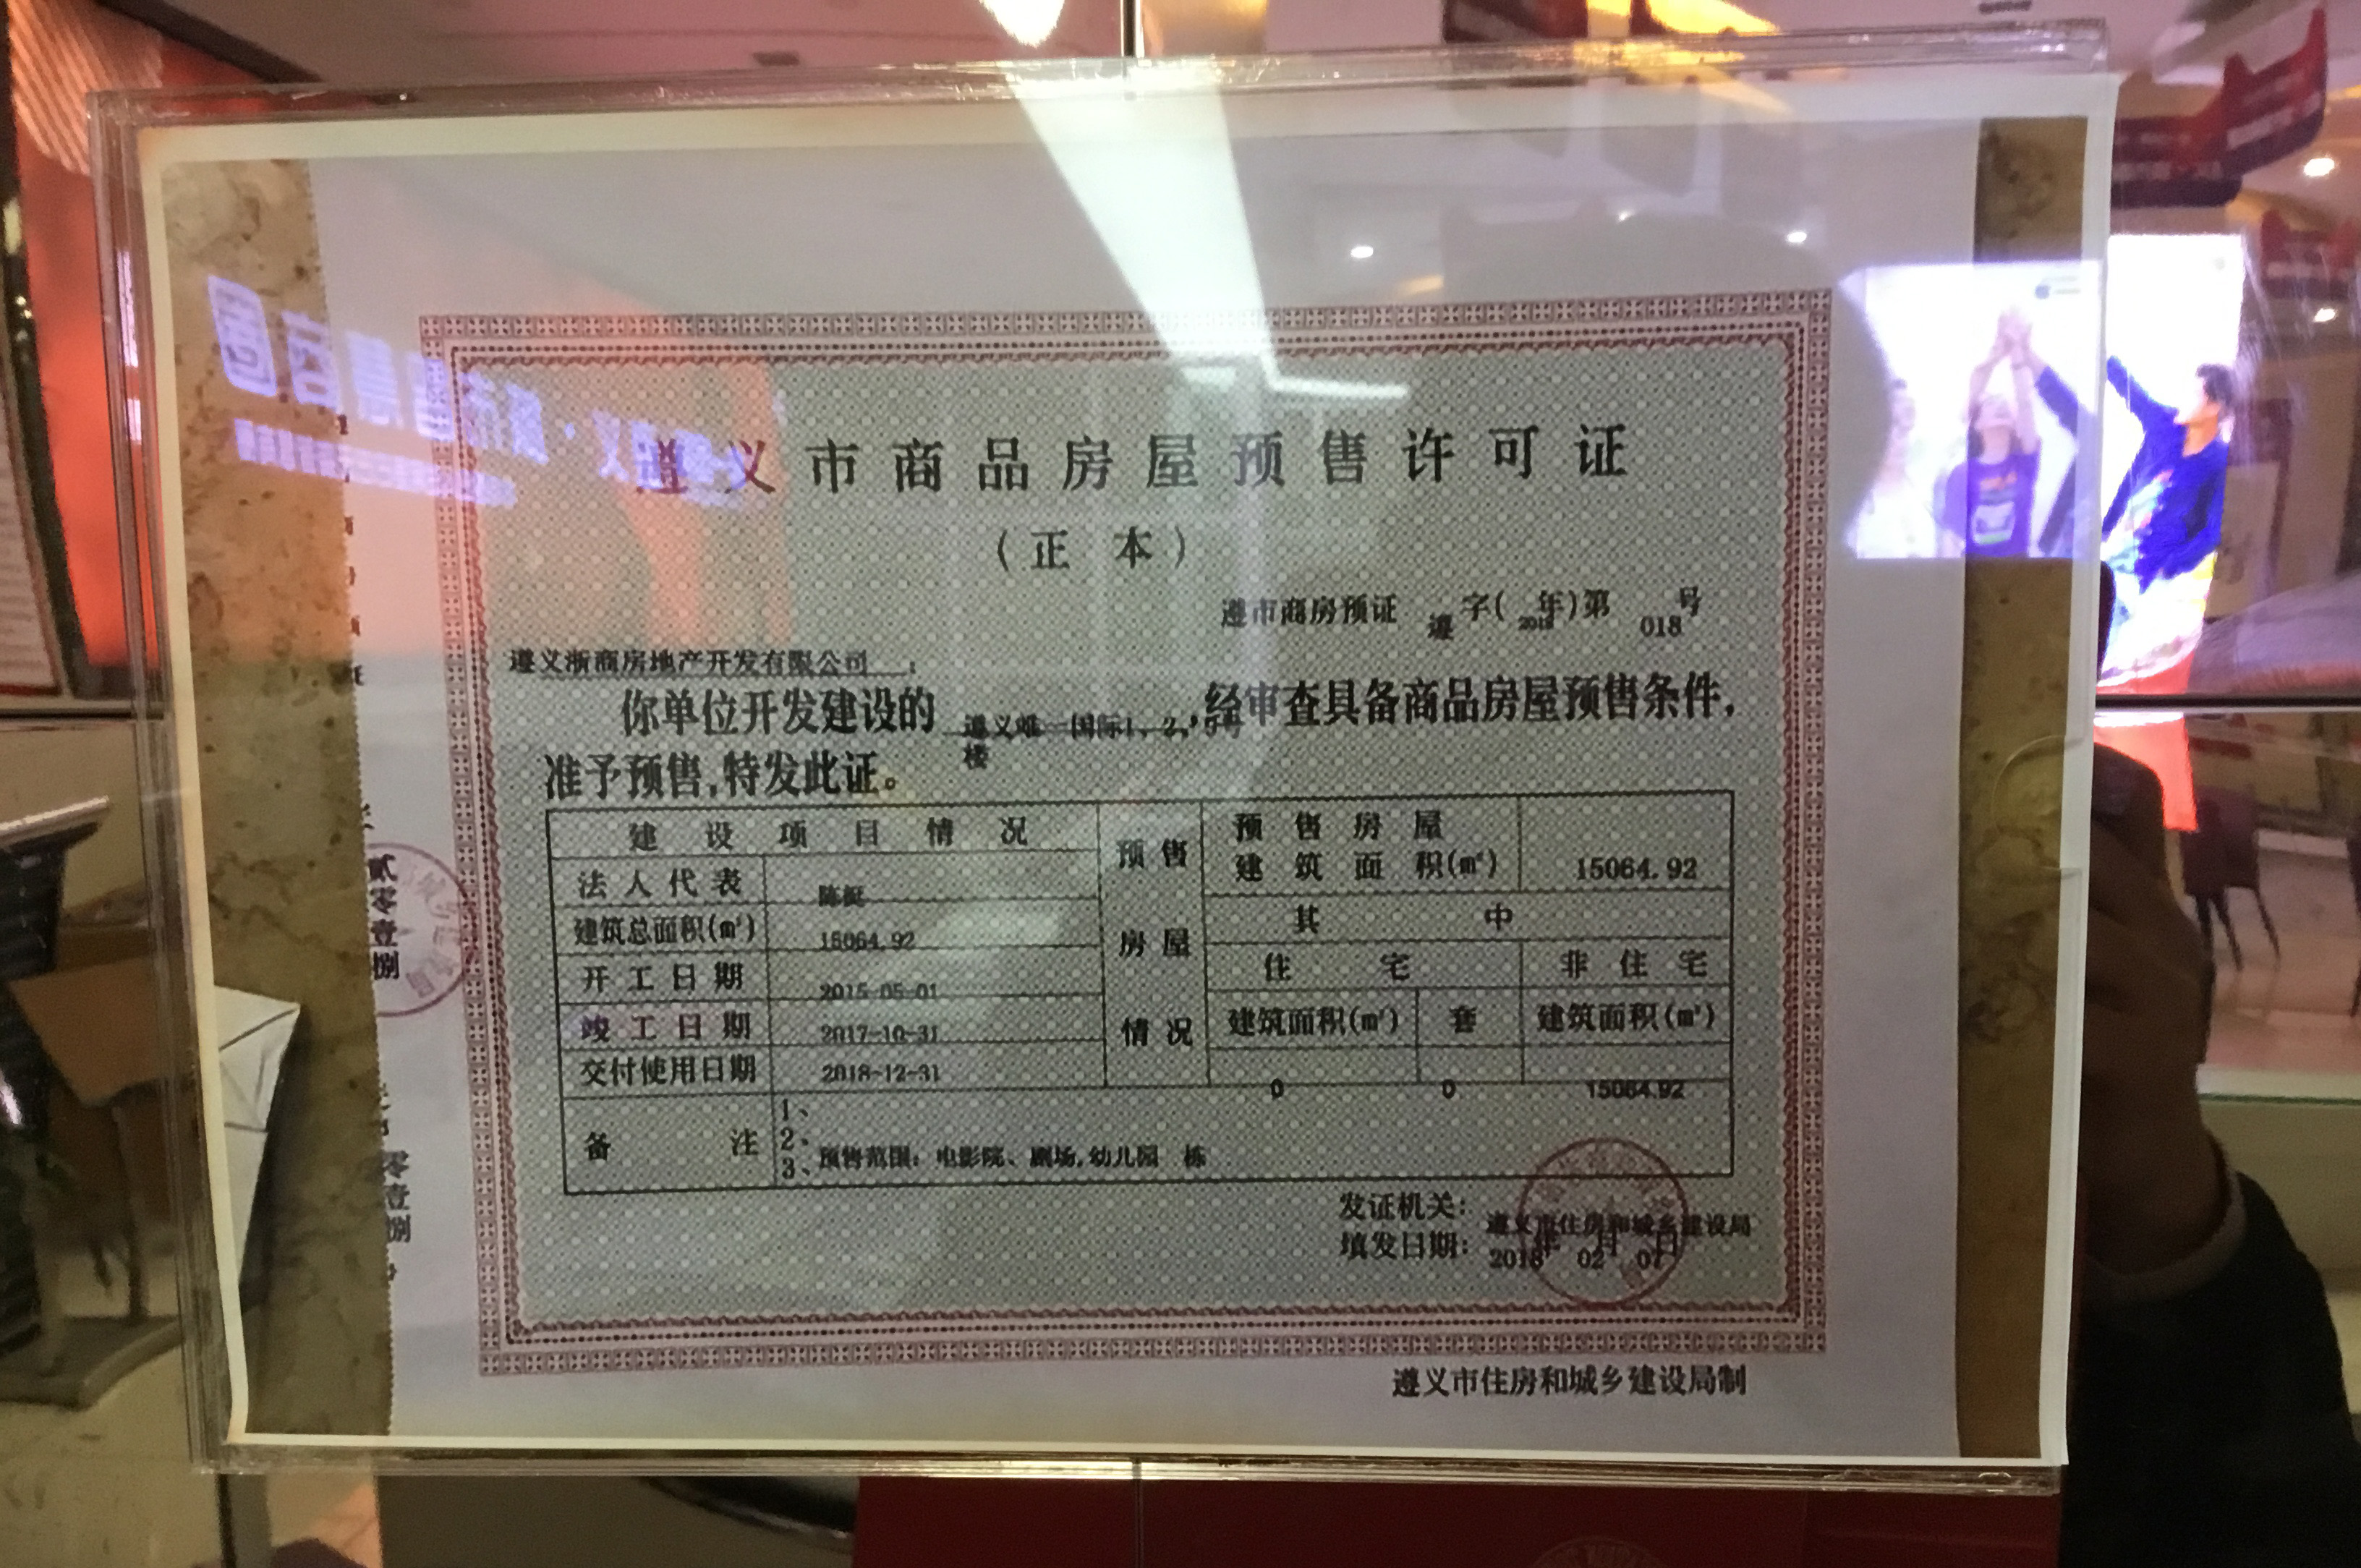 遵义市商品房屋预售许可证
(正 本)
遵市商房预证 遵 字( 2018 年)第 018 号
遵义浙商房地产开发有限公司 :
你单位开发建设的 遵义唯一国际1、2、 楼 ,经审查具备商品房屋预售条件,
准予预售,特发此证。
建设项目情况
法人代表 陈艇
建筑总面积(m²) 15064.92
开工日期 2015-05-01
竣工日期 2017-10-31
交付使用日期 2018-12-31
预售房屋情况
预售房屋建筑面积(m²) 15064.92
其中
住宅 非住宅
建筑面积(m²) 套 建筑面积(m²)
0 0 15064.92
备注
1、
2、
3、预售范围:电影院、剧场,幼儿园 栋
发证机关: 遵义市住房和城乡建设局
填发日期: 2018年02月07日
遵义市住房和城乡建设局制
贰零壹捌
零壹捌